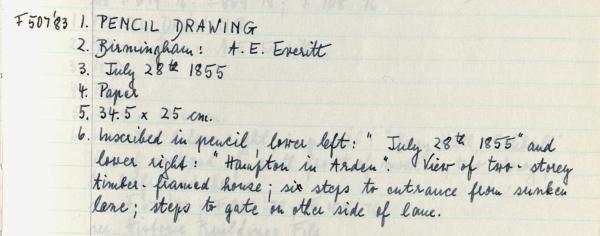 F507'83 1. PENCIL DRAWING
2. Birmingham: A. E. Everitt
3. July 28th 1855
4. Paper
5. 34.5 x 25 cm.
6. Inscribed in pencil lower left: "July 28th 1855" and
lower right: "Hampton in Arden". View of two-storey
timber-framed house; six steps to entrance from sunken
lane; steps to gate on other side of lane.